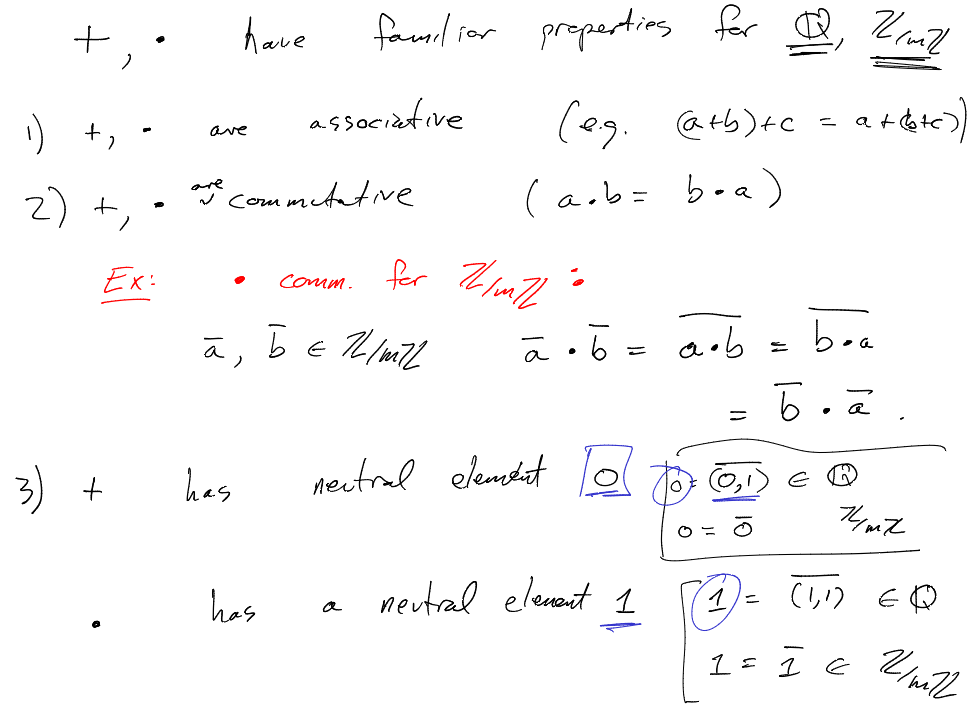 +, · have familiar properties for ℚ, ℤ/mℤ
1) +, · are associative (e.g. (a+b)+c = a+(b+c))
2) +, · are commutative (a·b = b·a)
Ex: · comm. for ℤ/mℤ :
a̅, b̅ ∈ ℤ/mℤ a̅ · b̅ = \overline{a·b} = \overline{b·a}
= b̅ · a̅ .
3) + has neutral element 0 0 = \overline{(0,1)} ∈ ℚ
0 = 0̅ ℤ/mℤ
· has a neutral element 1 1 = \overline{(1,1)} ∈ ℚ
1 = 1̅ ∈ ℤ/mℤ